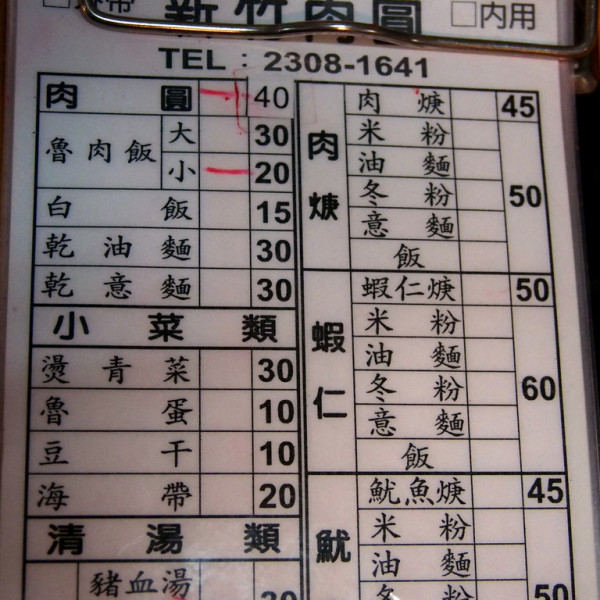 新竹肉圓
□內用
TEL：2308-1641
肉圓 40
魯肉飯 大 30
小 20
白飯 15
乾油麵 30
乾意麵 30
小菜類
燙青菜 30
魯蛋 10
豆干 10
海帶 20
清湯類
豬血湯
肉焿
肉焿 45
米粉
油麵
冬粉 50
意麵
飯
蝦仁
蝦仁焿 50
米粉
油麵
冬粉 60
意麵
飯
魷
魷魚焿 45
米粉
油麵
冬粉 50